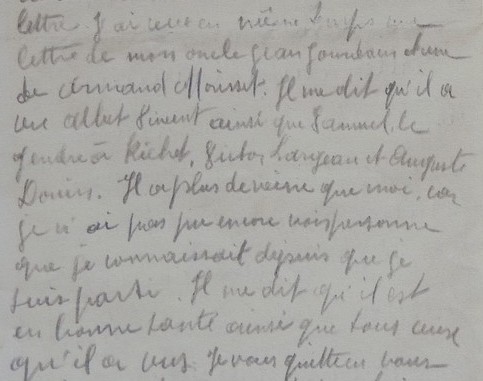 lettre. J'ai reçu en même temps une
lettre de mon oncle Jean et une
de Armand Moisset. Il me dit qu'il a
vu Albert ainsi que Samuel, le
gendre à Richet, Victor et Auguste
Il a plus de veine que moi, car
je n'ai pas pu encore voir personne
que je connaissait depuis que je
suis parti. Il me dit qu'il est
en bonne santé ainsi que tous ceux
qu'il a vus. Je vous quitte en vous